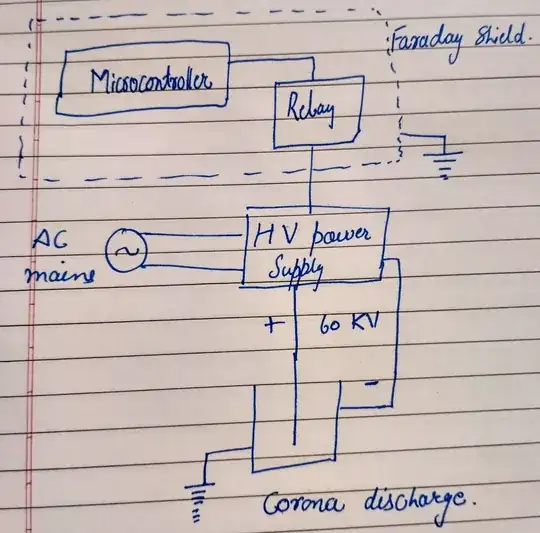 Faraday Shield.
Microcontroller
Relay
AC
mains
HV power
Supply
+ 60 KV
-
Corona discharge.